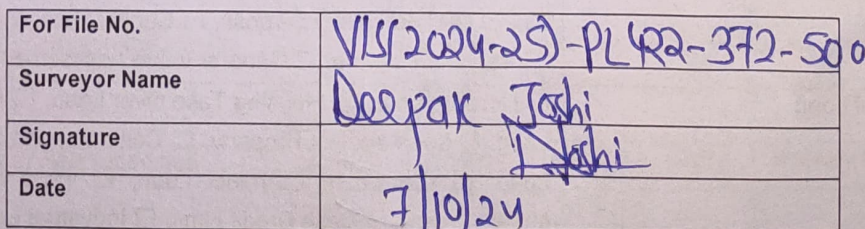 For File No. VIS(2024-25)-PL422-372-500
Surveyor Name Deepak Joshi
Signature DJoshi
Date 7/10/24